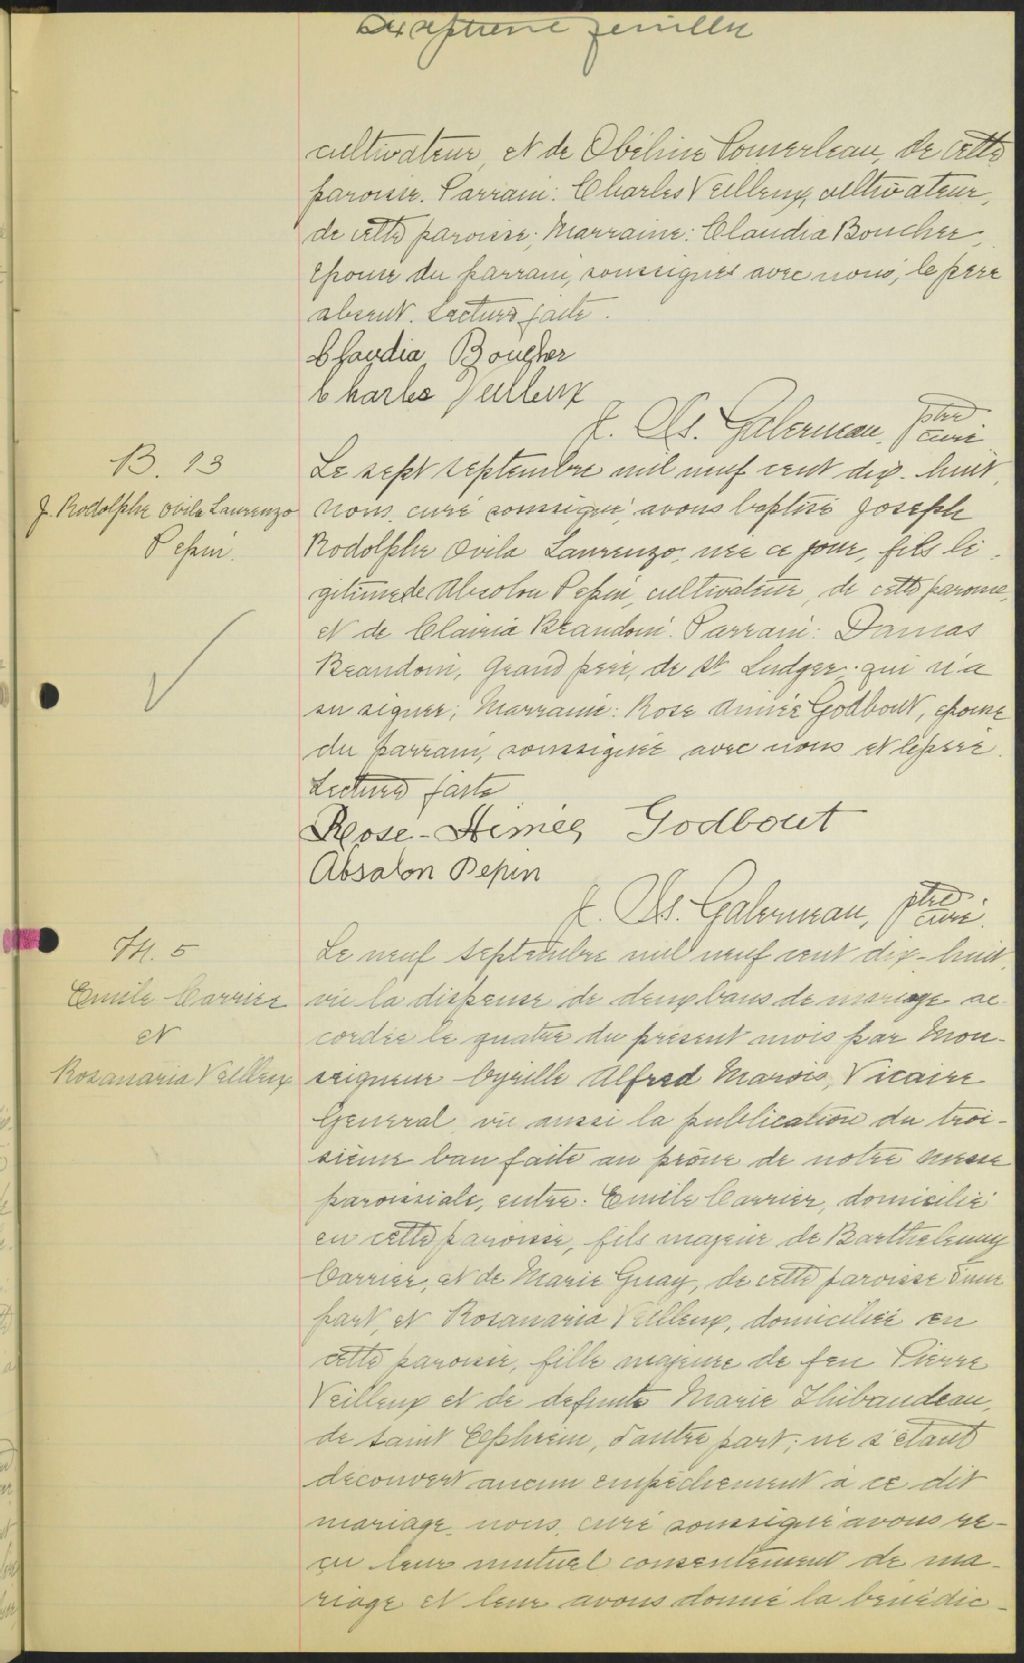 Dix septieme feuillet
cultivateur, et de Obéline Pomerleau, de cette
paroisse. Parrain: Charles Veilleux, cultivateur,
de cette paroisse; Marraine: Claudia Boucher,
épouse du parrain, soussignés avec nous; le père
absent. Lecture faite.
Claudia Boucher
Charles Veilleux
J. Galerneau, ptre curé
B. 13
J. Rodolphe Ovila Laurenzo
Pepin.
Le sept septembre mil neuf cent dix-huit,
nous, curé soussigné, avons baptisé Joseph
Rodolphe Ovila Laurenzo, née ce jour, fils lé-
gitime de Absolon Pepin, cultivateur, de cette paroisse,
et de Clairia Beaudoin. Parrain: Damas
Beaudoin, Grand père, de St Ludger, qui n'a
su signer; Marraine: Rose Aimée Godbout, épouse
du parrain, soussignée avec nous et le père.
Lecture faite
Rose-Aimée Godbout
Absalon Pepin
J. Galerneau, ptre curé.
M. 5
Emile Carrier
et
Rosanaria Veilleux
Le neuf septembre mil neuf cent dix-huit,
vu la dispense de deux bans de mariage ac-
cordée le quatre du présent mois par Mon-
seigneur Cyrille Alfred Marois, Vicaire
Général, vu aussi la publication du troi-
sième ban faite au prône de notre messe
paroissiale, entre: Emile Carrier, domicilié
en cette paroisse, fils majeur de Barthelemy
Carrier, et de Marie Guay, de cette paroisse d'une
part, et Rosanaria Veilleux, domiciliée en
cette paroisse, fille majeure de feu Pierre
Veilleux et de defunte Marie Thibaudeau,
de Saint Ephrem, d'autre part; ne s'étant
découvert aucun empêchement à ce dit
mariage, nous, curé soussigné avons re-
çu leur mutuel consentement de ma-
riage et leur avons donné la bénédic-